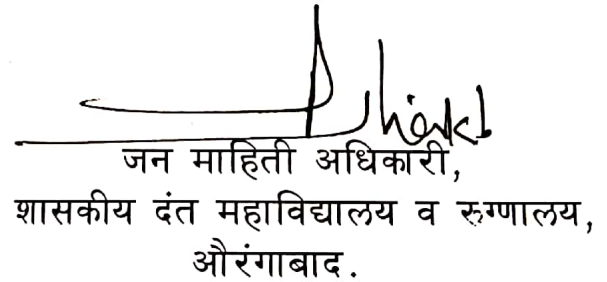 जन माहिती अधिकारी,
शासकीय दंत महाविद्यालय व रुग्णालय,
औरंगाबाद.